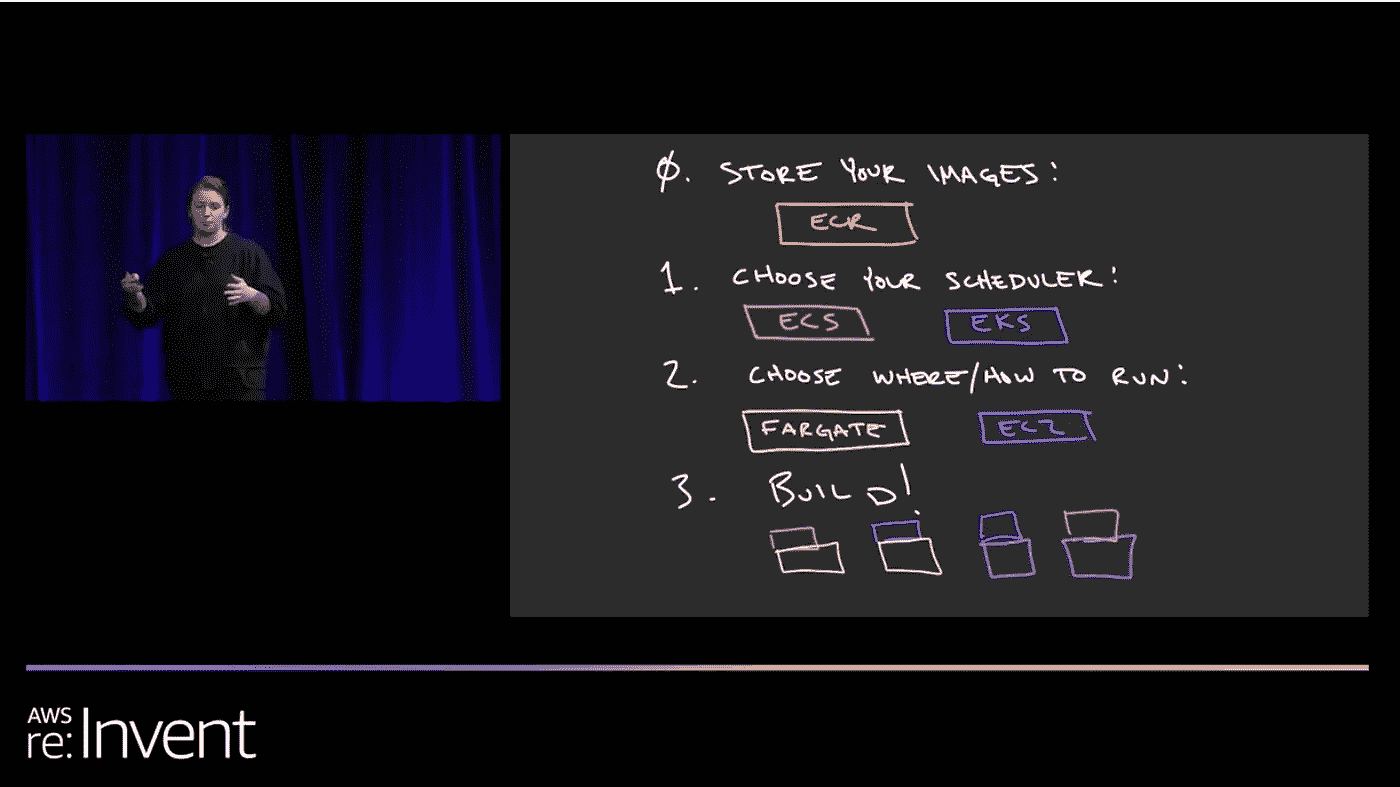 0. STORE YOUR IMAGES:
ECR
1. CHOOSE YOUR SCHEDULER:
ECS EKS
2. CHOOSE WHERE/HOW TO RUN:
FARGATE EC2
3. BUILD!
AWS
re:Invent